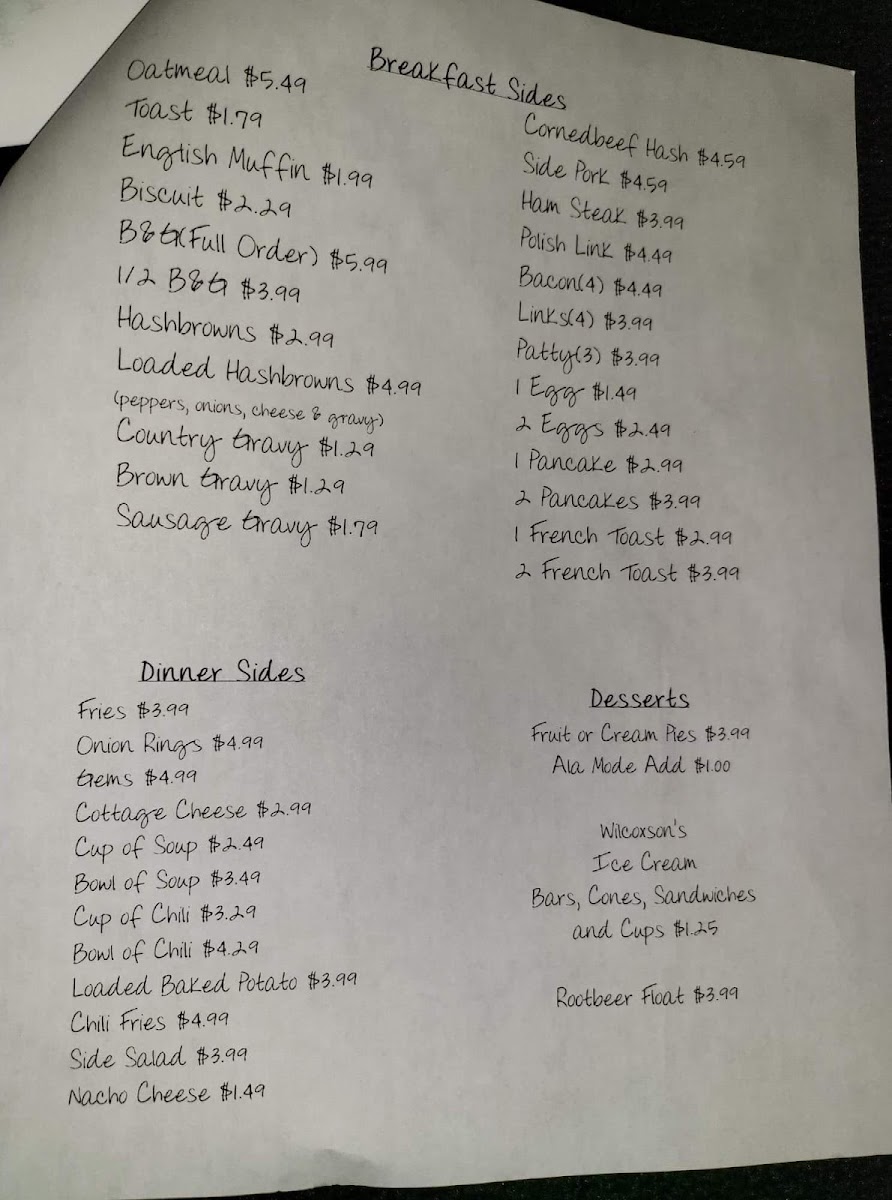 Breakfast Sides
Oatmeal $5.49
Toast $1.79
English Muffin $1.99
Biscuit $2.29
B&G(Full Order) $5.99
1/2 B&G $3.99
Hashbrowns $2.99
Loaded Hashbrowns $4.99
(peppers, onions, cheese & gravy)
Country Gravy $1.29
Brown Gravy $1.29
Sausage Gravy $1.79
Cornedbeef Hash $4.59
Side Pork $4.59
Ham Steak $3.99
Polish Link $4.49
Bacon(4) $4.49
Links(4) $3.99
Patty(3) $3.99
1 Egg $1.49
2 Eggs $2.49
1 Pancake $2.99
2 Pancakes $3.99
1 French Toast $2.99
2 French Toast $3.99
Dinner Sides
Fries $3.99
Onion Rings $4.99
Gems $4.99
Cottage Cheese $2.99
Cup of Soup $2.49
Bowl of Soup $3.49
Cup of Chili $3.29
Bowl of Chili $4.29
Loaded Baked Potato $3.99
Chili Fries $4.99
Side Salad $3.99
Nacho Cheese $1.49
Desserts
Fruit or Cream Pies $3.99
Ala Mode Add $1.00
Wilcoxson's
Ice Cream
Bars, Cones, Sandwiches
and Cups $1.25
Rootbeer Float $3.99